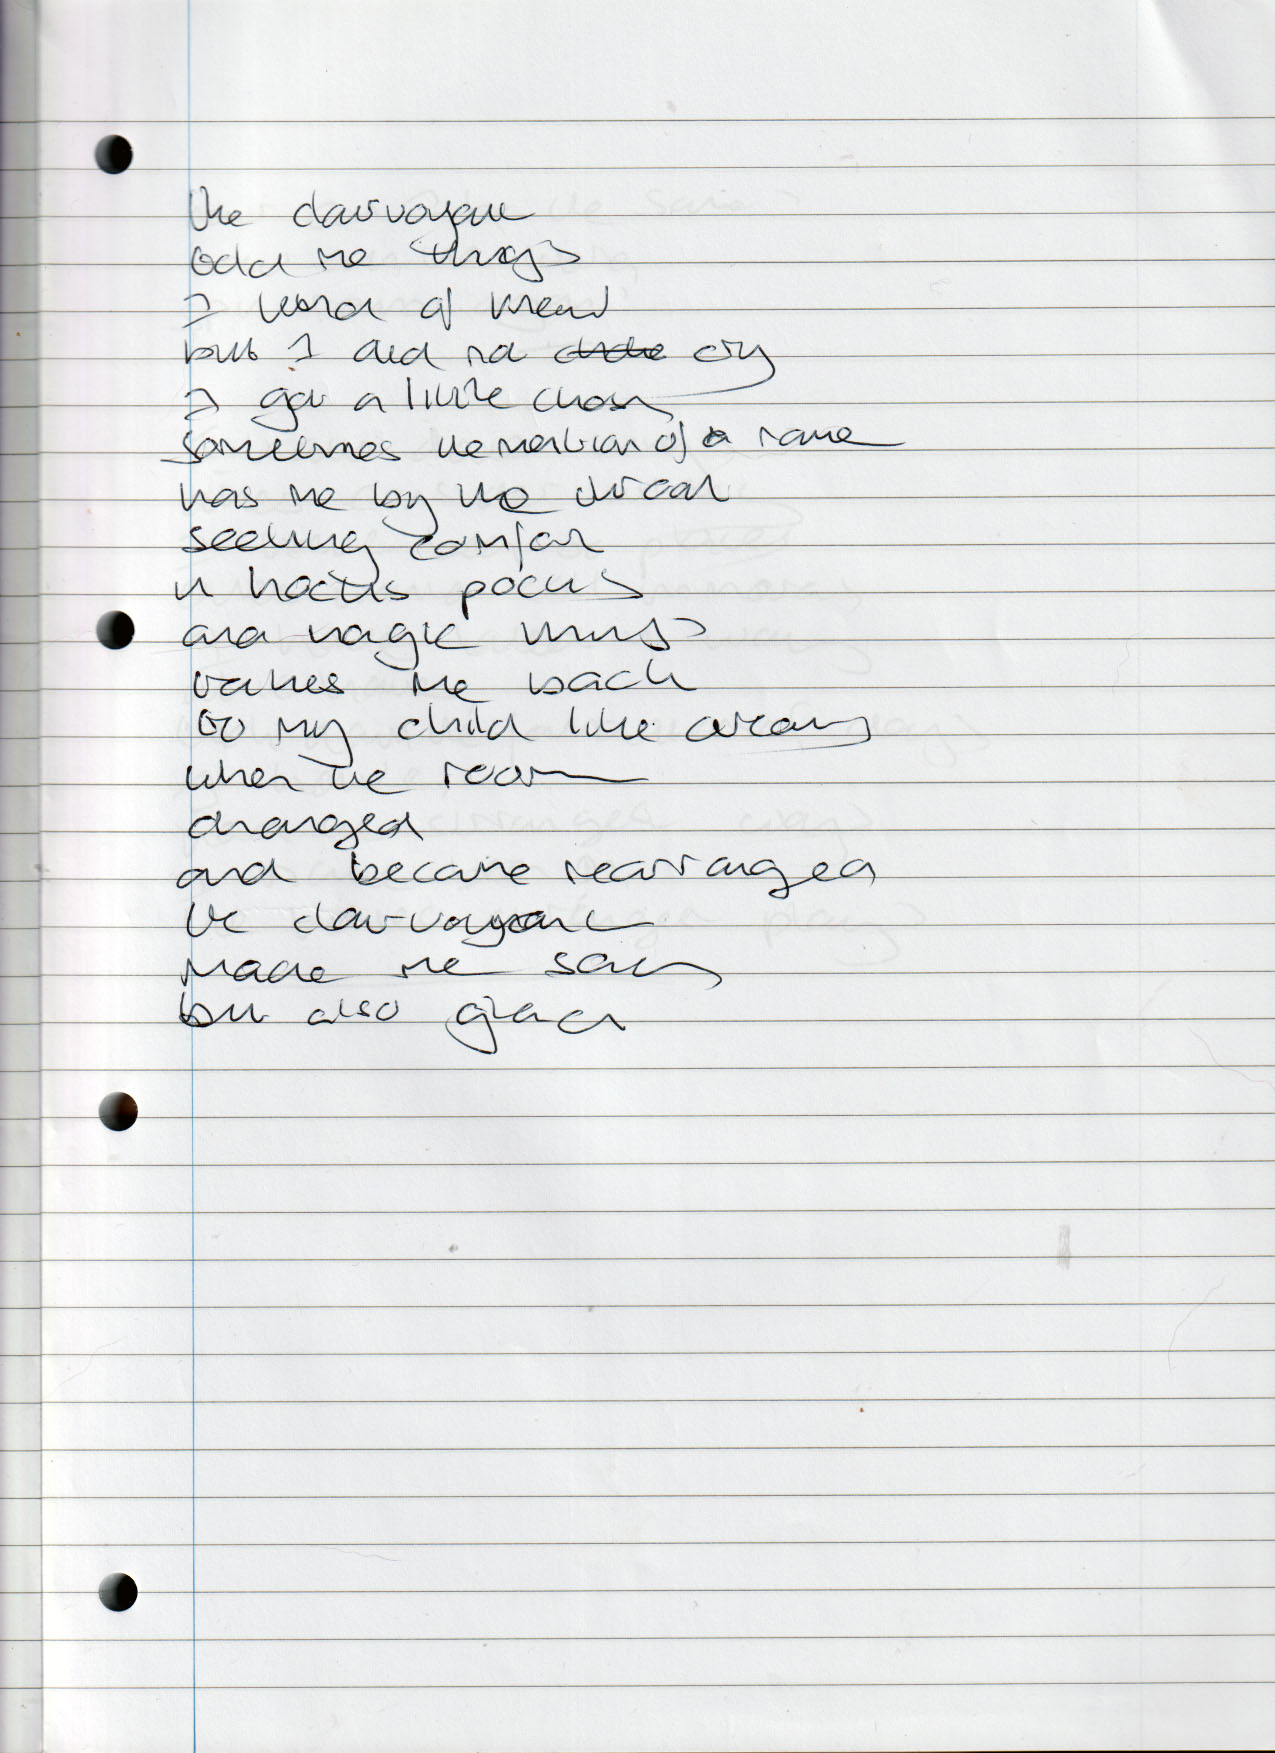 the clairvoyant
told me things
I kind of knew
but I did not cry
I got a little
sometimes the mention of a name
has me by the throat
seeking comfort
in hocus pocus
and magic
takes me back
to my child like
when the room
changed
and became rearranged
the clairvoyant
made me sad
but also glad